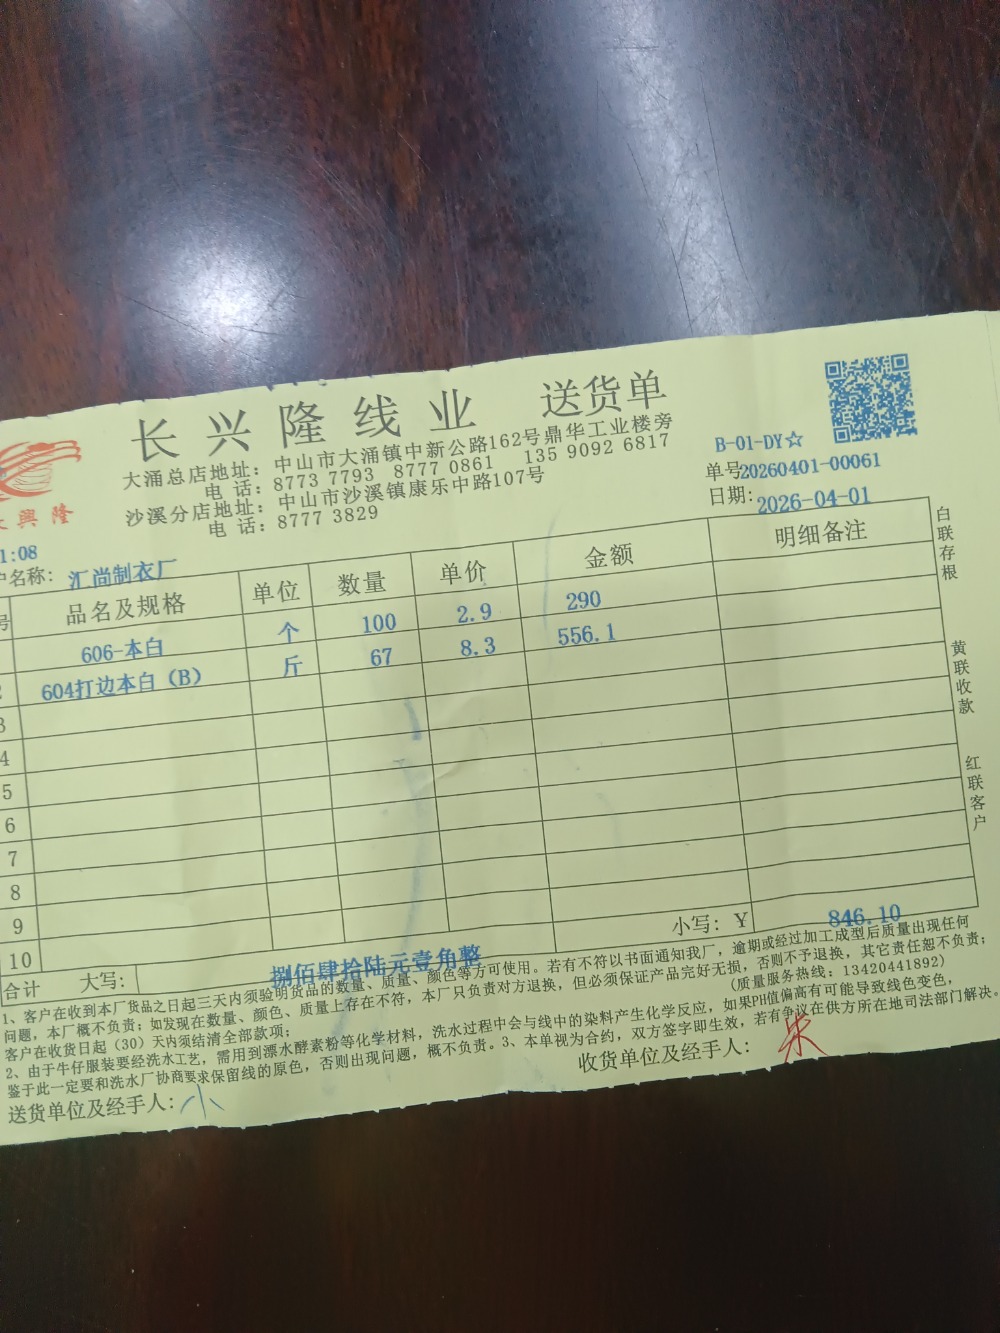 长兴隆线业 送货单
大涌总店地址：中山市大涌镇中新公路162号鼎华工业楼旁
电 话：8773 7793 8777 0861 135 9092 6817
沙溪分店地址：中山市沙溪镇康乐中路107号
电 话：8777 3829
B-01-DY☆
单号20260401-00061
日期：2026-04-01
興隆
1:08
名称：汇尚制衣厂
号 品名及规格 单位 数量 单价 金额 明细备注
606-本白 个 100 2.9 290
2 604打边本白（B） 斤 67 8.3 556.1
3
4
5
6
7
8
9
10
小写：￥ 846.10
合计 大写：捌佰肆拾陆元壹角整
白联存根
黄联收款
红联客户
1、客户在收到本厂货品之日起三天内须验明货品的数量、质量、颜色等方可使用。若有不符以书面通知我厂，逾期或经过加工成型后质量出现任何
问题，本厂概不负责；如发现在数量、颜色、质量上存在不符，本厂只负责对方退换，但必须保证产品完好无损，否则不予退换，其它责任恕不负责；
客户在收货日起（30）天内须结清全部款项； （质量服务热线：13420441892）
2、由于牛仔服装要经洗水工艺，需用到漂水酵素粉等化学材料，洗水过程中会与线中的染料产生化学反应，如果PH值偏高有可能导致线色变色，
鉴于此一定要和洗水厂协商要求保留线的原色，否则出现问题，概不负责。3、本单视为合约，双方签字即生效，若有争议在供方所在地司法部门解决。
送货单位及经手人：小
收货单位及经手人：朱